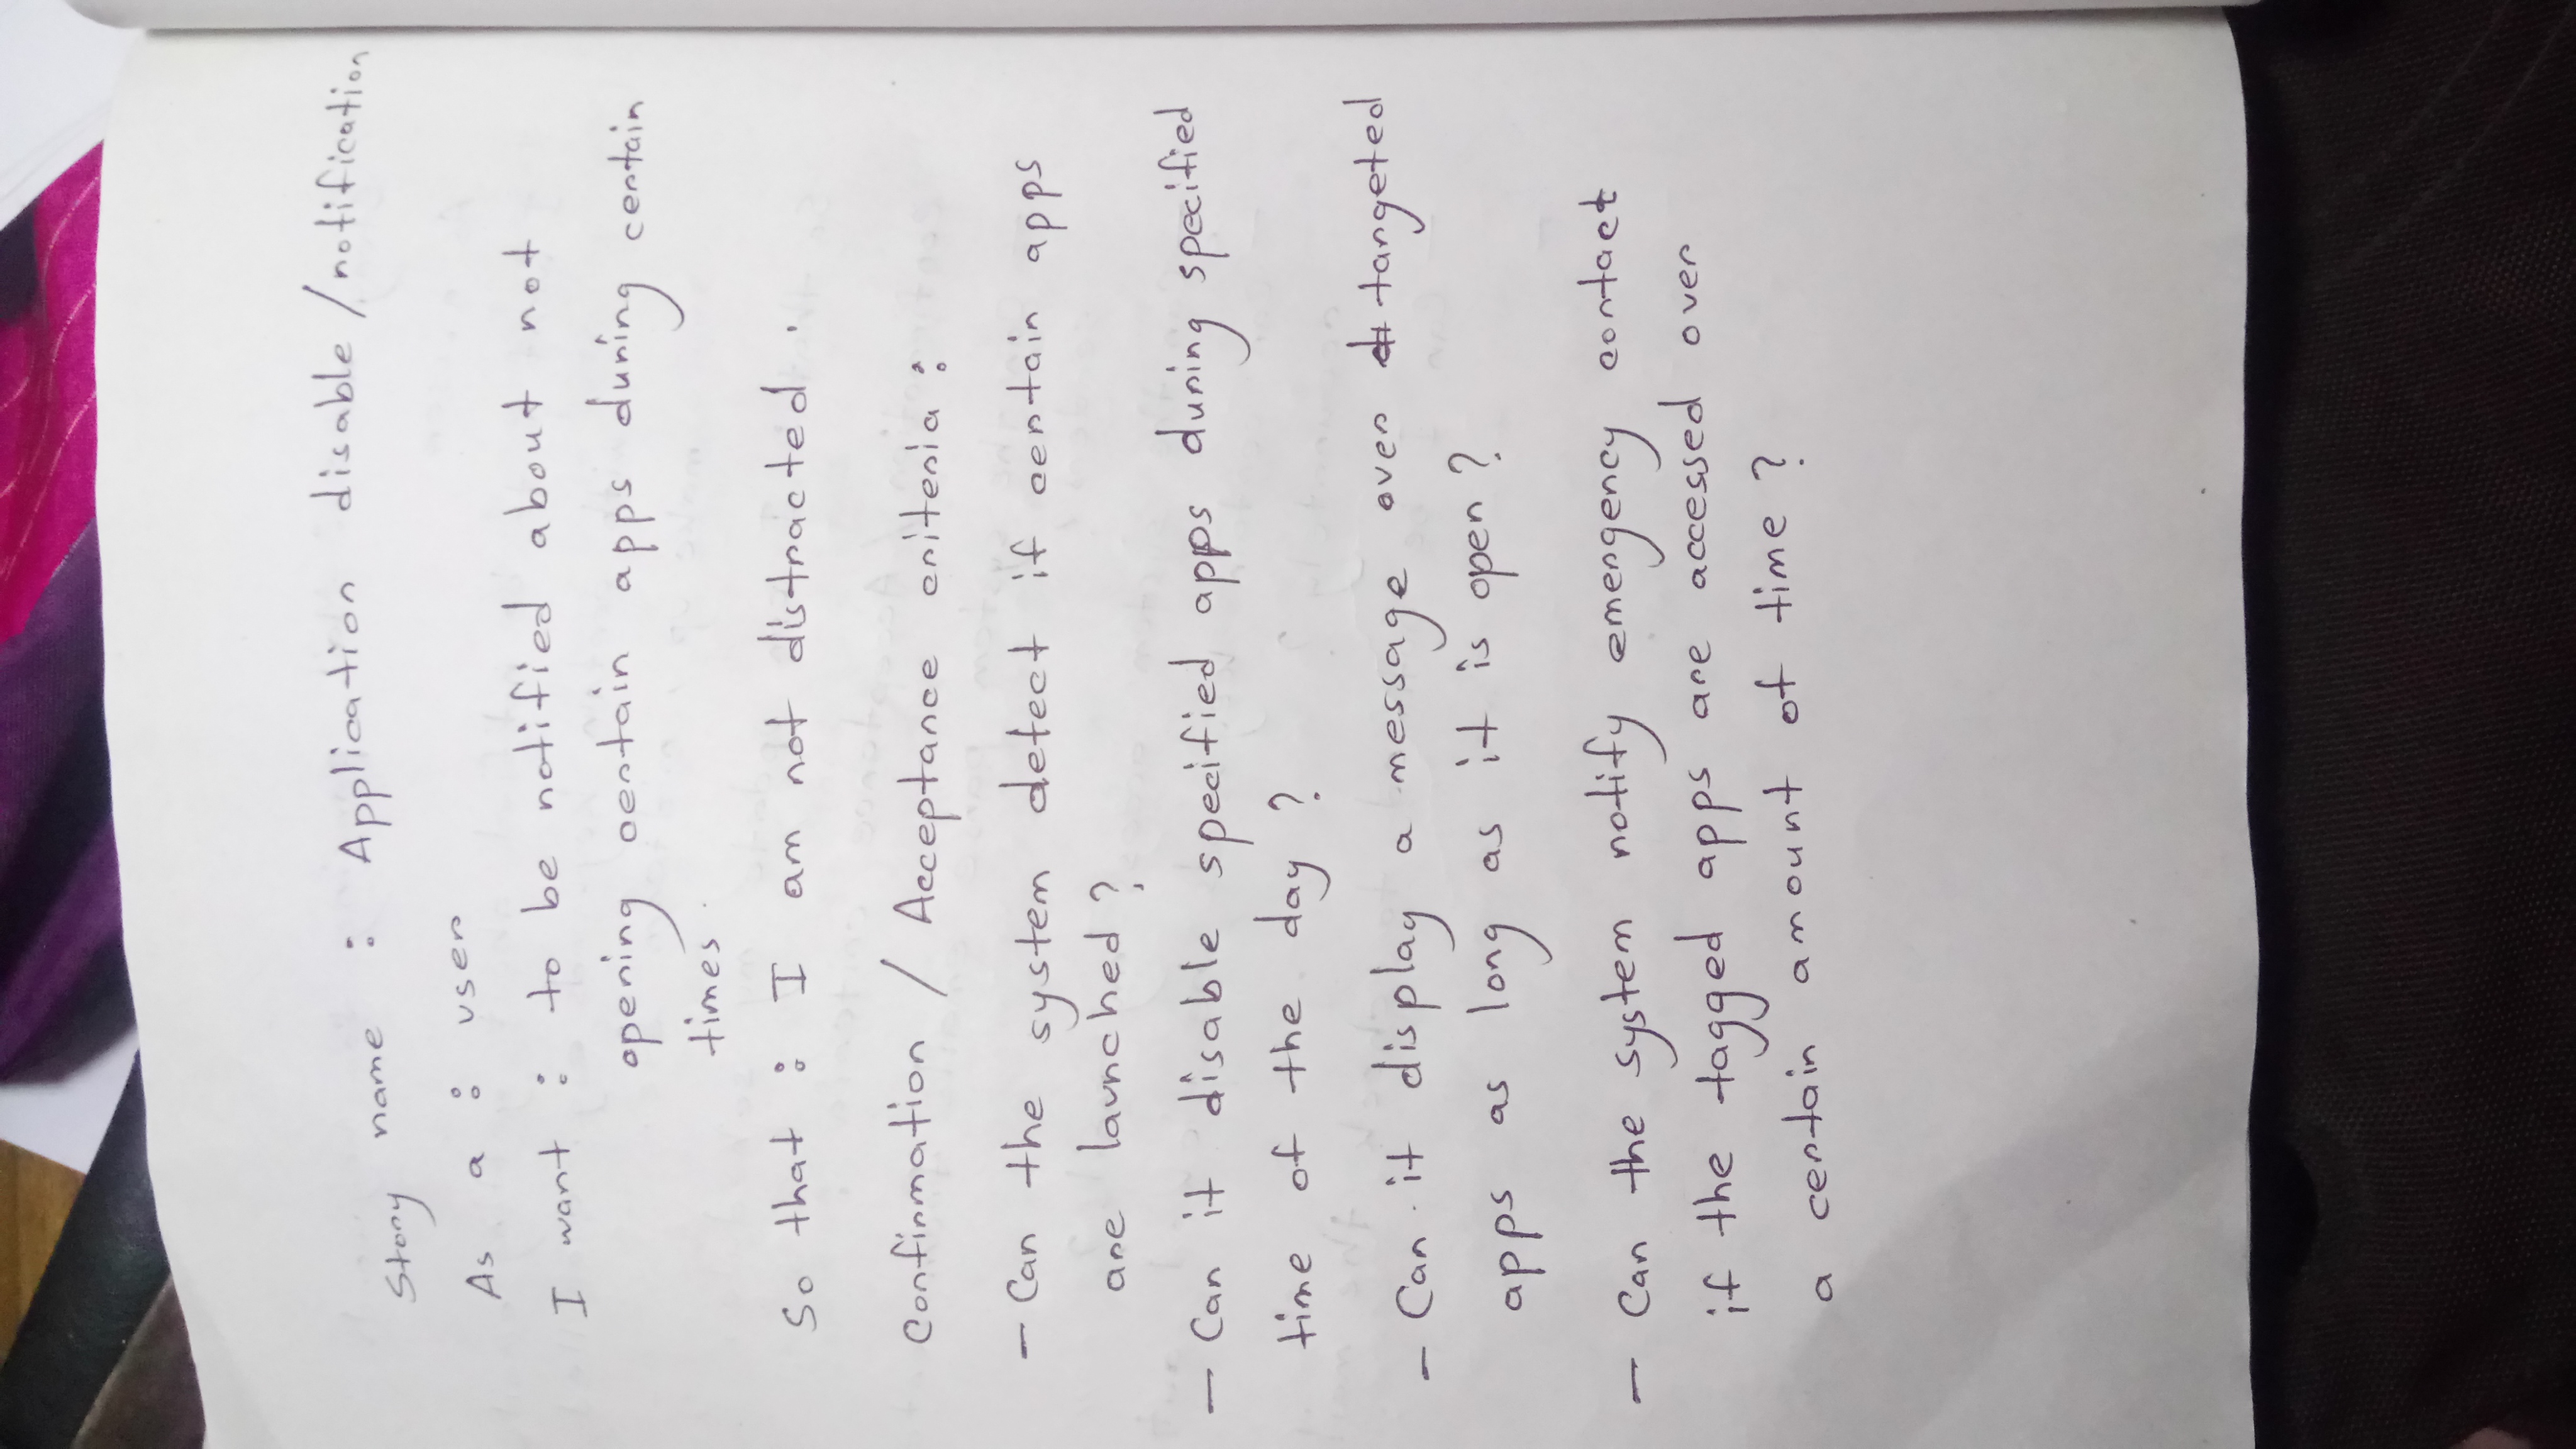 Story name : Application disable / notification
As a : user
I want : to be notified about not
opening certain apps during certain
times.
So that : I am not distracted.
Confirmation / Acceptance criteria :
- Can the system detect if certain apps
are launched?
- Can it disable specified apps during specified
time of the day?
- Can it display a message over targeted
apps as long as it is open?
- Can the system notify emergency contact
if the tagged apps are accessed over
a certain amount of time?